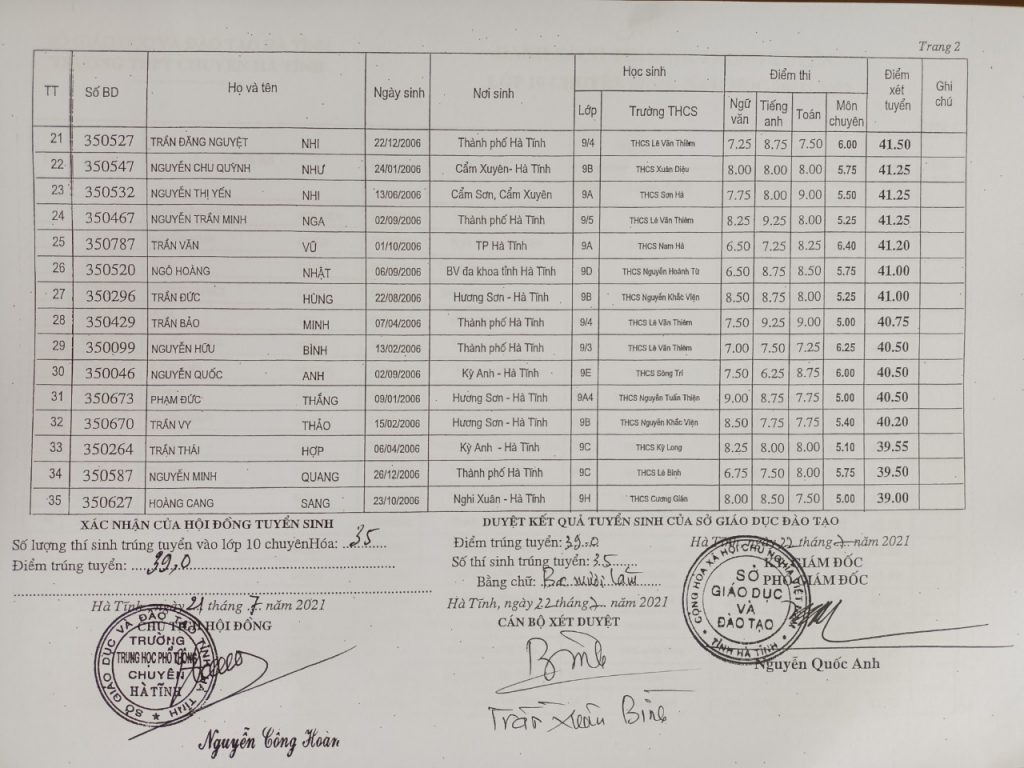 Trang 2
TT Số BD Họ và tên Ngày sinh Nơi sinh Học sinh Điểm thi Điểm xét tuyển Ghi chú
Lớp Trường THCS Ngữ văn Tiếng anh Toán Môn chuyên
21 350527 TRẦN ĐẶNG NGUYỆT NHI 22/12/2006 Thành phố Hà Tĩnh 9/4 THCS Lê Văn Thiêm 7.25 8.75 7.50 6.00 41.50
22 350547 NGUYỄN CHU QUỲNH NHƯ 24/01/2006 Cẩm Xuyên- Hà Tĩnh 9B THCS Xuân Diệu 8.00 8.00 8.00 5.75 41.25
23 350532 NGUYỄN THỊ YẾN NHI 13/06/2006 Cẩm Sơn, Cẩm Xuyên 9A THCS Sơn Hà 7.75 8.00 9.00 5.50 41.25
24 350467 NGUYỄN TRẦN MINH NGA 02/09/2006 Thành phố Hà Tĩnh 9/5 THCS Lê Văn Thiêm 8.25 9.25 8.00 5.25 41.25
25 350787 TRẦN VĂN VŨ 01/10/2006 TP Hà Tĩnh 9A THCS Nam Hà 6.50 7.25 8.25 6.40 41.20
26 350520 NGÔ HOÀNG NHẬT 06/09/2006 BV đa khoa tỉnh Hà Tĩnh 9D THCS Nguyễn Hoành Từ 6.50 8.75 8.50 5.75 41.00
27 350296 TRẦN ĐỨC HÙNG 22/08/2006 Hương Sơn - Hà Tĩnh 9B THCS Nguyễn Khắc Viện 8.50 8.75 8.00 5.25 41.00
28 350429 TRẦN BẢO MINH 07/04/2006 Thành phố Hà Tĩnh 9/4 THCS Lê Văn Thiêm 7.50 9.25 9.00 5.00 40.75
29 350099 NGUYỄN HỮU BÌNH 13/02/2006 Thành phố Hà Tĩnh 9/3 THCS Lê Văn Thiêm 7.00 7.50 7.25 6.25 40.50
30 350046 NGUYỄN QUỐC ANH 02/09/2006 Kỳ Anh - Hà Tĩnh 9E THCS Sông Trí 7.50 6.25 8.75 6.00 40.50
31 350673 PHẠM ĐỨC THẮNG 09/01/2006 Hương Sơn - Hà Tĩnh 9A4 THCS Nguyễn Tuấn Thiện 9.00 8.75 7.75 5.00 40.50
32 350670 TRẦN VY THẢO 15/02/2006 Hương Sơn - Hà Tĩnh 9B THCS Nguyễn Khắc Viện 8.50 7.75 7.75 5.40 40.20
33 350264 TRẦN THÁI HỢP 06/04/2006 Kỳ Anh - Hà Tĩnh 9C THCS Kỳ Long 8.25 8.00 8.00 5.10 39.55
34 350587 NGUYỄN MINH QUANG 26/12/2006 Thành phố Hà Tĩnh 9C THCS Lê Bình 6.75 7.50 8.00 5.75 39.50
35 350627 HOÀNG CANG SANG 23/10/2006 Nghi Xuân - Hà Tĩnh 9H THCS Cương Gián 8.00 8.50 7.50 5.00 39.00
XÁC NHẬN CỦA HỘI ĐỒNG TUYỂN SINH
Số lượng thí sinh trúng tuyển vào lớp 10 chuyênHóa: 35
Điểm trúng tuyển: 39,0
Hà Tĩnh, ngày 21 tháng 7. năm 2021
CHỦ TỊCH HỘI ĐỒNG
SỞ GIÁO DỤC VÀ ĐÀO TẠO TỈNH HÀ TĨNH
TRƯỜNG
TRUNG HỌC PHỔ THÔNG
CHUYÊN
HÀ TĨNH
Nguyễn Công Hoàn
DUYỆT KẾT QUẢ TUYỂN SINH CỦA SỞ GIÁO DỤC ĐÀO TẠO
Điểm trúng tuyển: 39,0
Số thí sinh trúng tuyển: 35
Bằng chữ: Ba mươi lăm
Hà Tĩnh, ngày 22 tháng 7 năm 2021
CÁN BỘ XÉT DUYỆT
Trần Xuân Bình
Hà Tĩnh, ngày 22 tháng 7 năm 2021
KT GIÁM ĐỐC
PHÓ GIÁM ĐỐC
CỘNG HÒA XÃ HỘI CHỦ NGHĨA VIỆT NAM
SỞ
GIÁO DỤC
VÀ
ĐÀO TẠO
TỈNH HÀ TĨNH
Nguyễn Quốc Anh